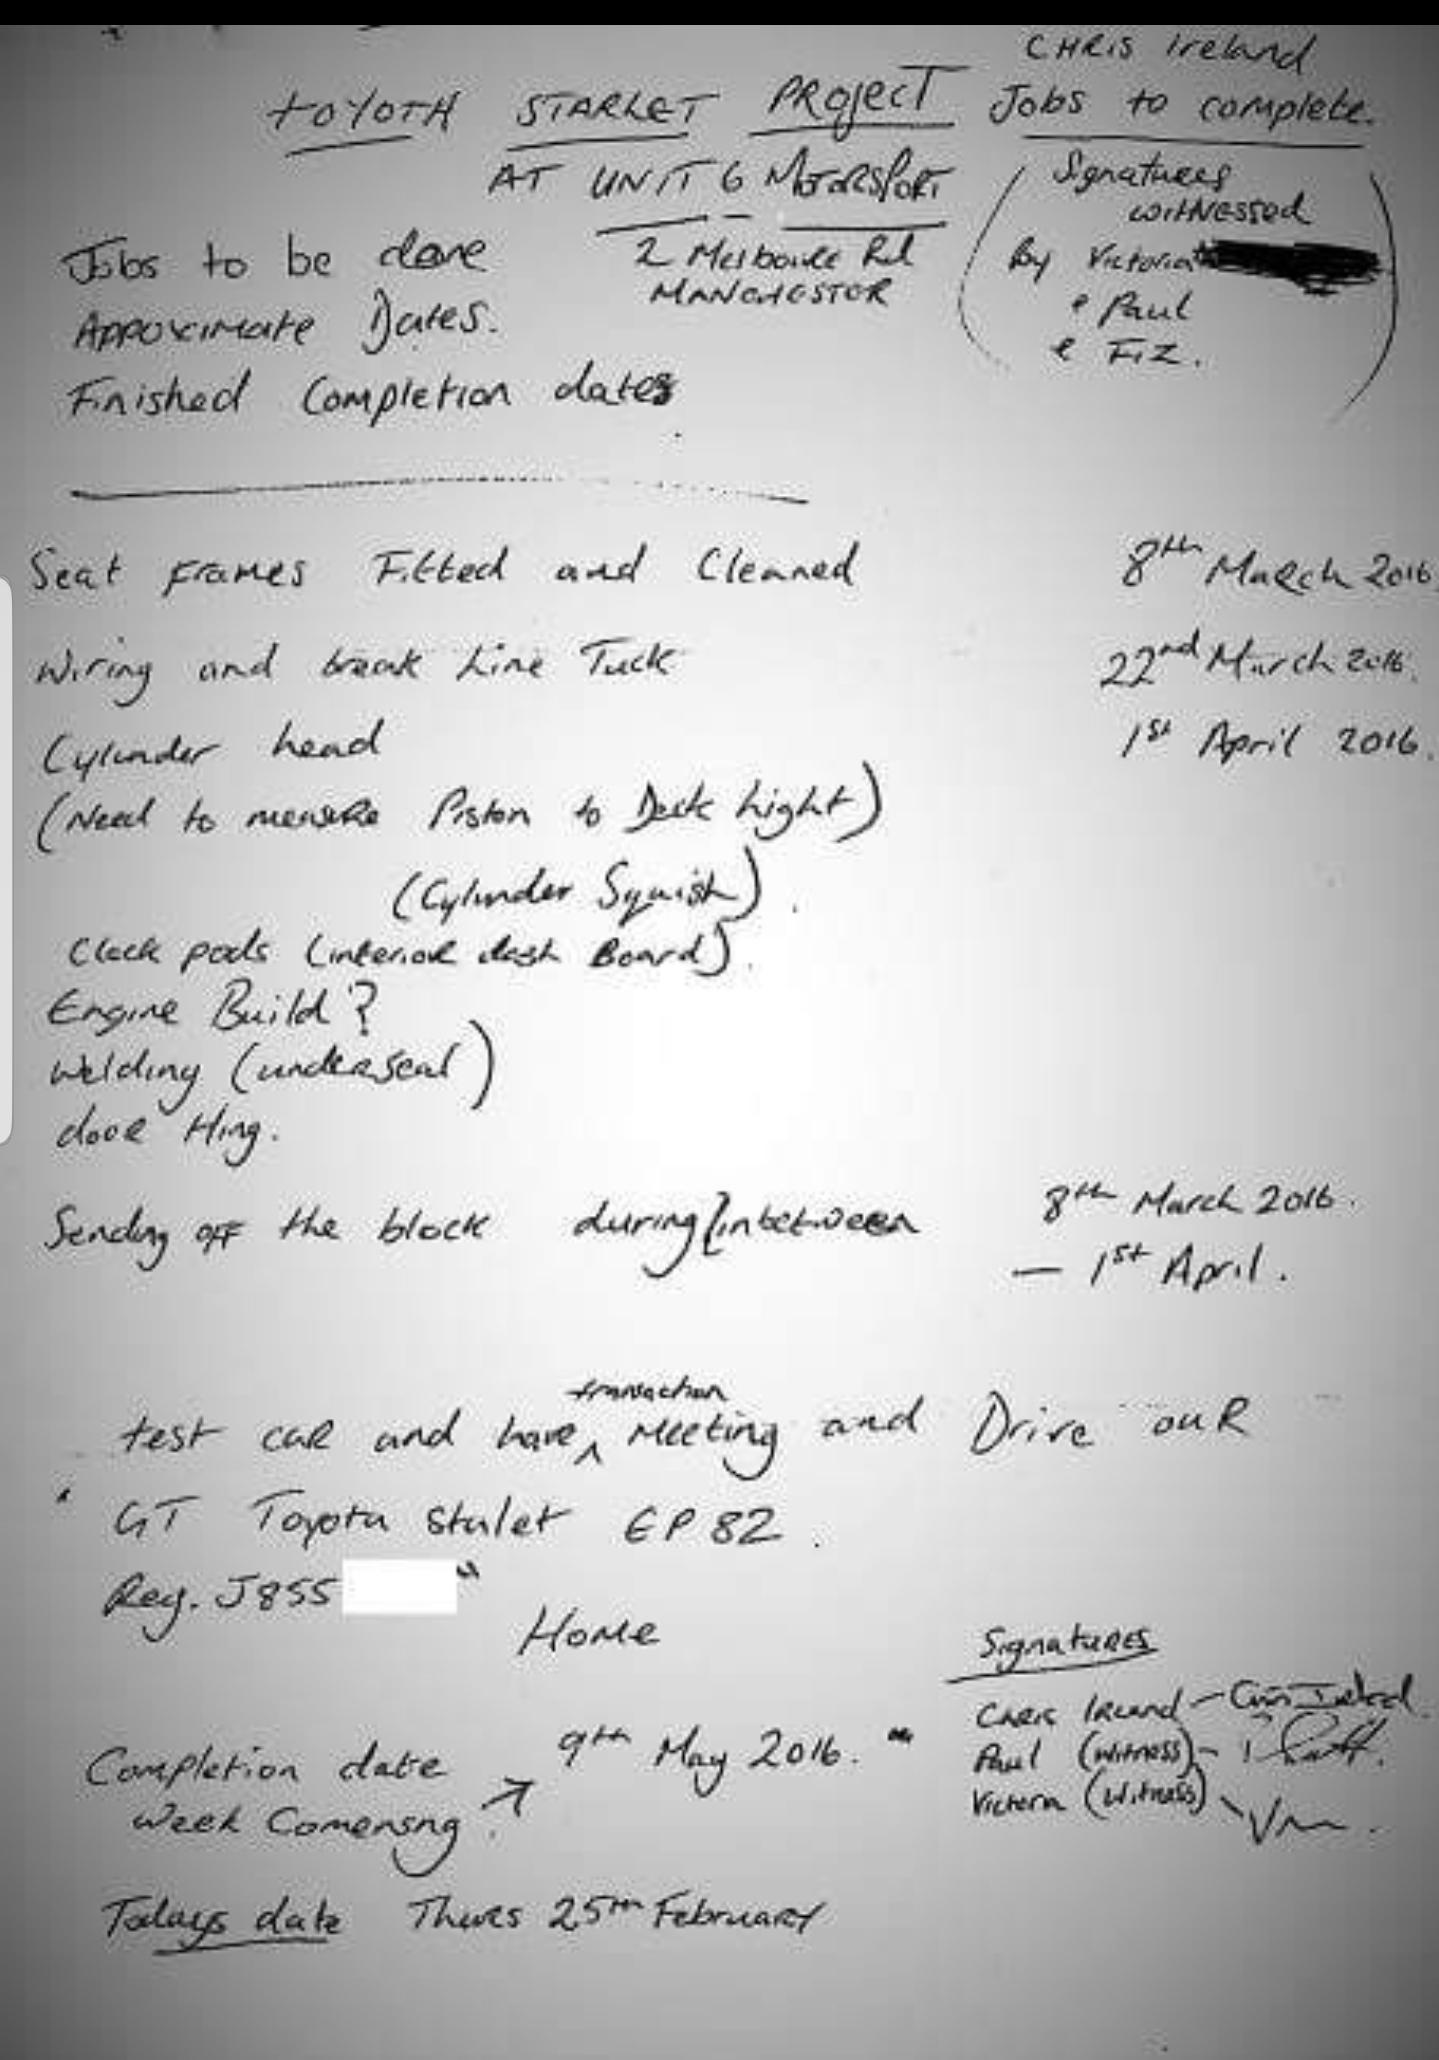 CHRIS Ireland
toyota STARLET PROJECT Jobs to complete.
AT UNIT 6 MOTORSPORT
(Signatures
witnessed
By Victoria
& Paul
& Fiz.)
Jobs to be done
2 Melbourne Rd
MANCHESTER
Approximate Dates.
Finished Completion dates
Seat Frames Fitted and Cleaned 8th March 2016
Wiring and break Line Tuck 22nd March 2016.
Cylinder head 1st April 2016.
(Need to measure Piston to Deck hight)
(Cylinder Squish).
Clock pods (interior dash Board).
Engine Build?
Welding (underseal)
dooR Hing.
Sending off the block during/inbetween 8th March 2016.
— 1st April.
transaction
test caR and have ^ Meeting and Drive ouR
" GT Toyota Stalet EP82.
Reg. J855 "
Home
Signatures
Chris Ireland - Chris Ireland.
Paul (witness) -
Victoria (Witness) -
Completion date 9th May 2016. "
Week Comensng. ↗
Todays date Thurs 25th February